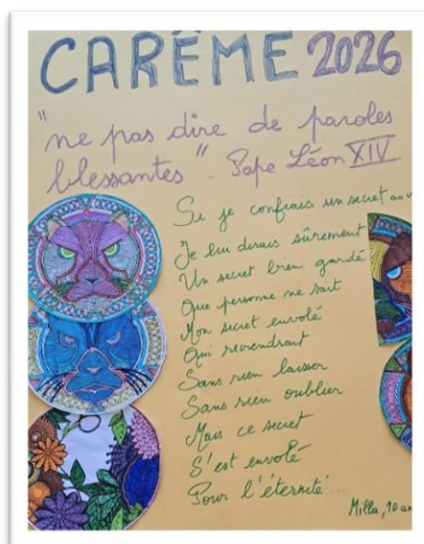 CARÊME 2026
"ne pas dire de paroles
blessantes" - Pape Léon XIV
Si je confiais un secret au v
Je lui dirais sûrement
Un secret bien gardé
Que personne ne sait
Mon secret envolé
Qui reviendrait
Sans rien laisser
Sans rien oublier
Mais ce secret
S'est envolé
Pour l'éternité...
Milla, 10 an